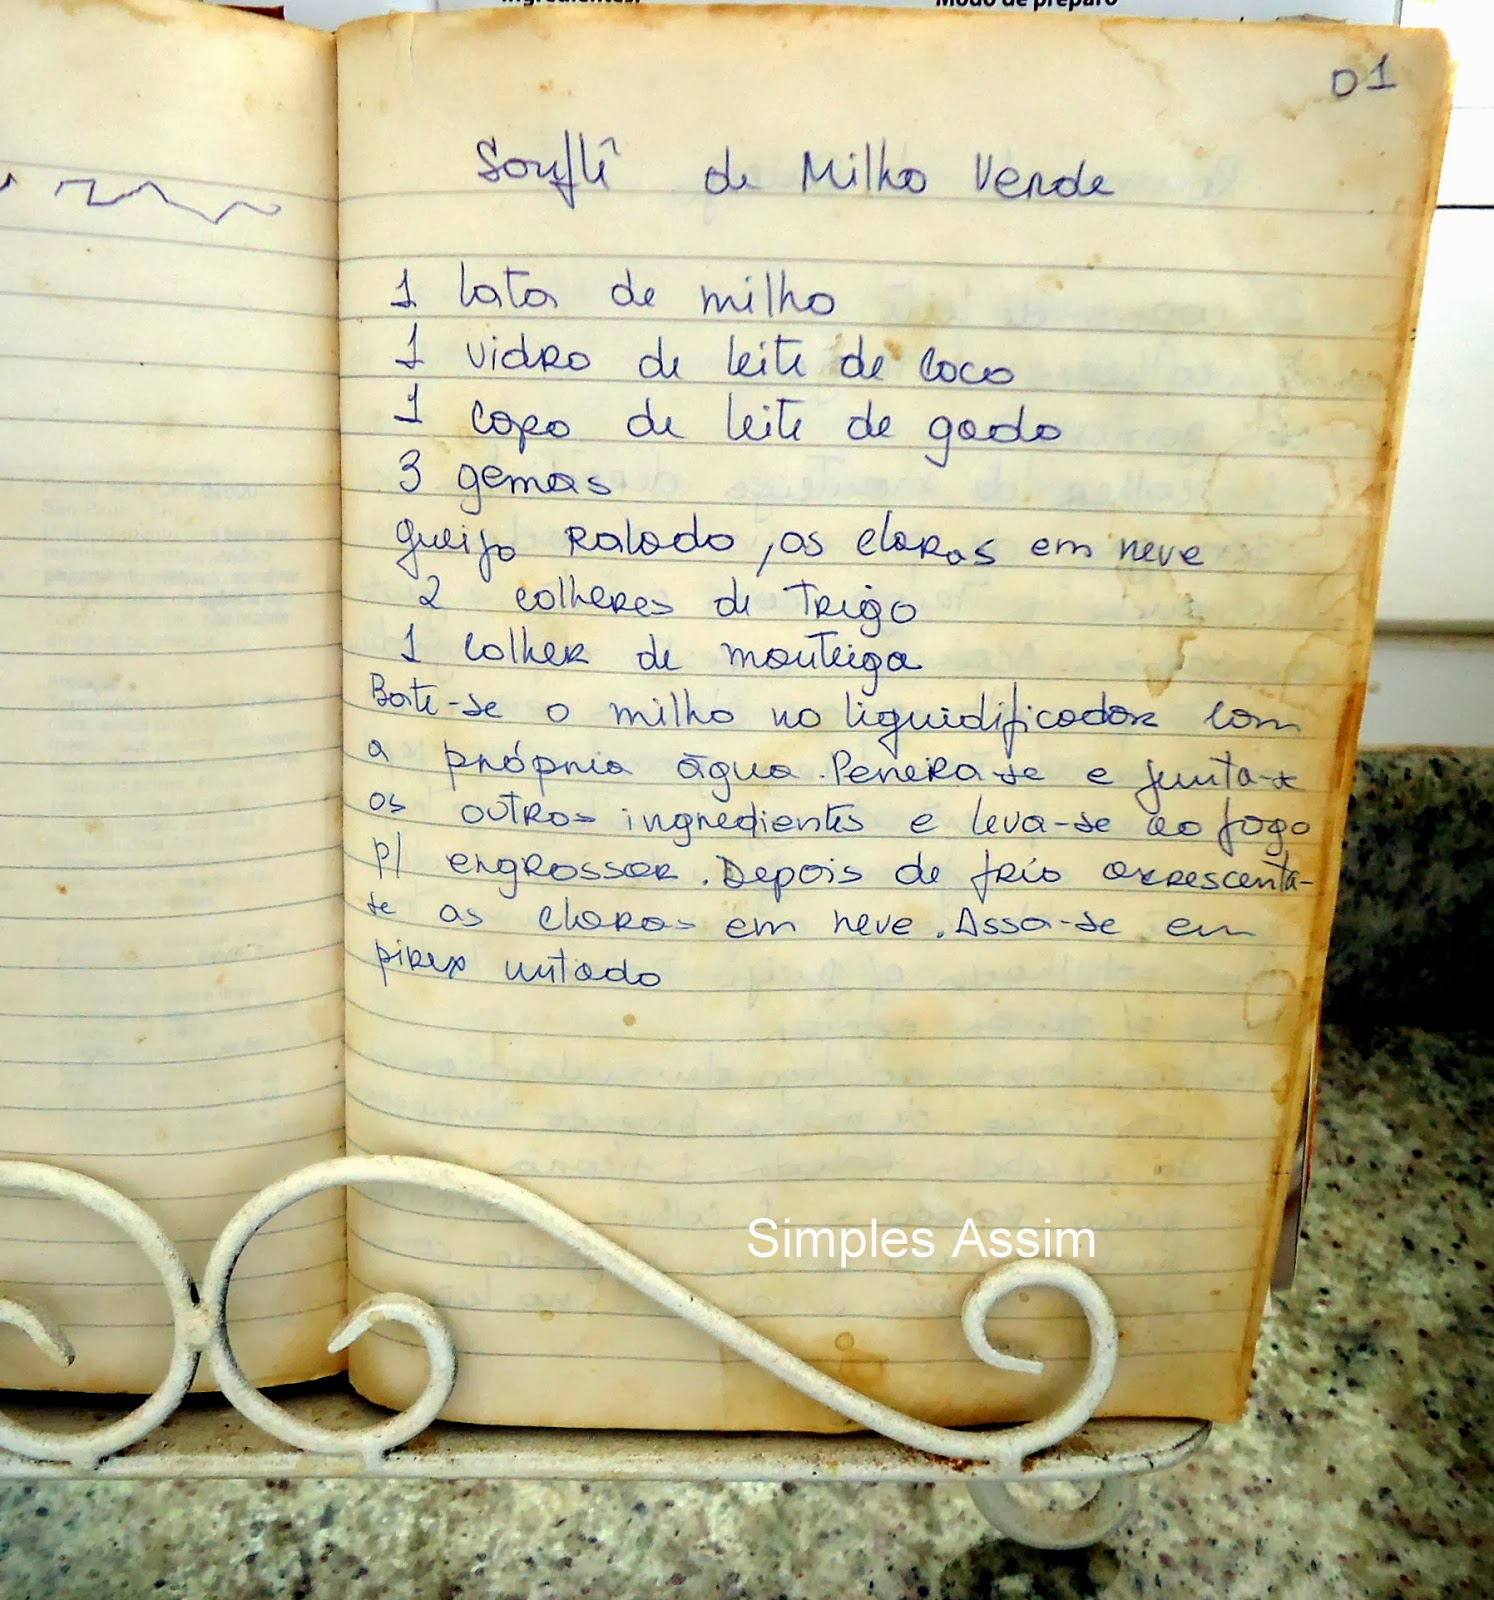 Ingredientes:
Modo de preparo
01
Souflê de Milho Verde
1 lata de milho
1 vidro de leite de coco
1 copo de leite de gado
3 gemas
queijo ralado, as claras em neve
2 colheres de trigo
1 colher de manteiga
Bate-se o milho no liquidificador com
a própria água. Peneira-se e junta-se
os outros ingredientes e leva-se ao fogo
p/ engrossar. Depois de frio acrescenta-
se as claras em neve. Assa-se em
pirex untado
Simples Assim